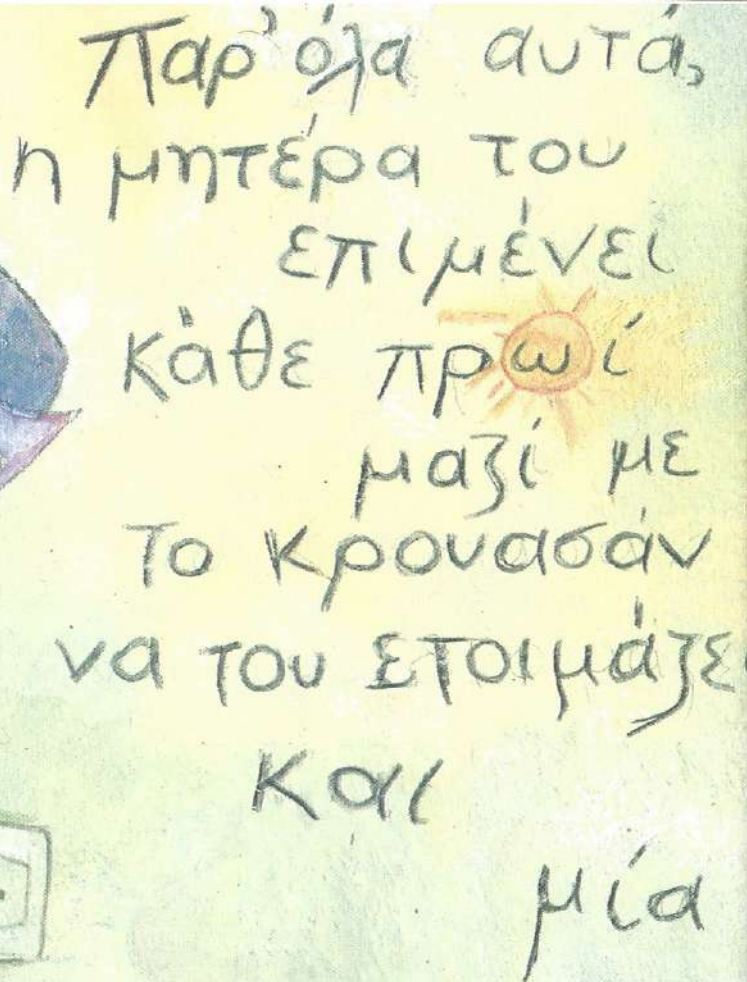 Παρ' όλα αυτά,
η μητέρα του
επιμένει
κάθε πρωί
μαζί με
το κρουασάν
να του ετοιμάζει
και
μία